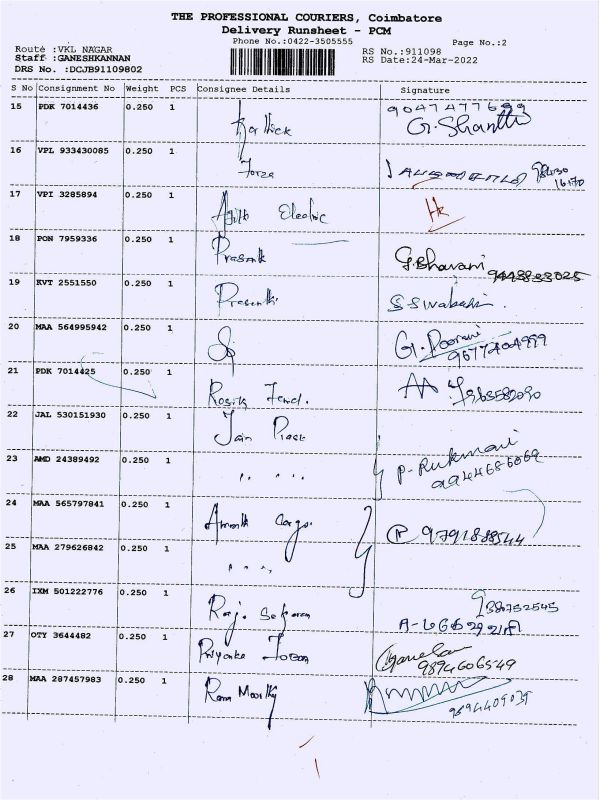 THE PROFESSIONAL COURIERS, Coimbatore
Delivery Runsheet - PCM
Phone No.:0422-3505555
Page No.:2
Route :VKL NAGAR
RS No.:911098
Staff :GANESHKANNAN
RS Date:24-Mar-2022
DRS No. :DCJB91109802
S No Consignment No Weight PCS Consignee Details Signature
15 PDK 7014436 0.250 1 Karthick 9047477699
G. Shanthi
16 VPL 933430085 0.250 1
17 VPI 3285894 0.250 1 Ajith Electric
18 PON 7959336 0.250 1 Prasanth G.Bhavani 9443833025
19 KVT 2551550 0.250 1 Prasanth
20 MAA 564995942 0.250 1 G. Poorani
9677404999
21 PDK 7014425 0.250 1
22 JAL 530151930 0.250 1 Jain
23 AMD 24389492 0.250 1 " " " " P. Rukmani
9944686069
24 MAA 565797841 0.250 1 Cargo 9791888544
25 MAA 279626842 0.250 1 " " " "
26 IXM 501222776 0.250 1 Raja Sekaran 9386752545
27 OTY 3644482 0.250 1 Priyanka Ganesan
9894606549
28 MAA 287457983 0.250 1 Rama Moorthy
9894409039